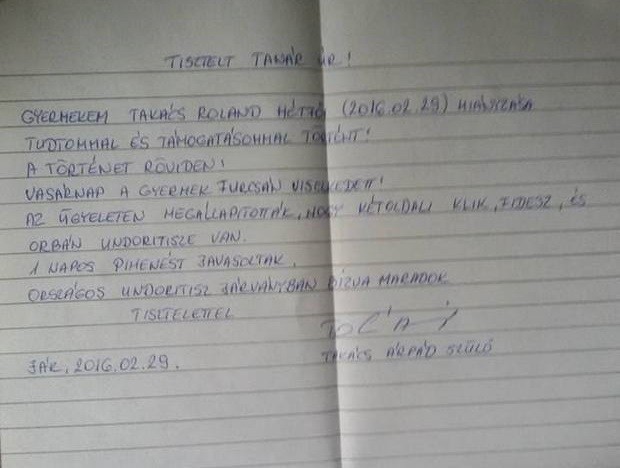 TISZTELT TANÁR ÚR!
GYERMEKEM TAKÁCS ROLAND HÉTFŐI (2016.02.29) HIÁNYZÁSA
TUDTOMMAL ÉS TÁMOGATÁSOMMAL TÖRTÉNT!
A TÖRTÉNET RÖVIDEN!
VASÁRNAP A GYERMEK FURCSÁN VISELKEDETT!
AZ ÜGYELETEN MEGÁLLAPÍTOTTÁK, HOGY KÉTOLDALI KLIK, FIDESZ, ÉS
ORBÁN UNDORITISZE VAN.
1 NAPOS PIHENÉST JAVASOLTAK.
ORSZÁGOS UNDORITISZ JÁRVÁNYBAN BÍZVA MARADOK
TISZTELETTEL
TAKÁCS ÁRPÁD SZÜLŐ
JÁK, 2016.02.29.